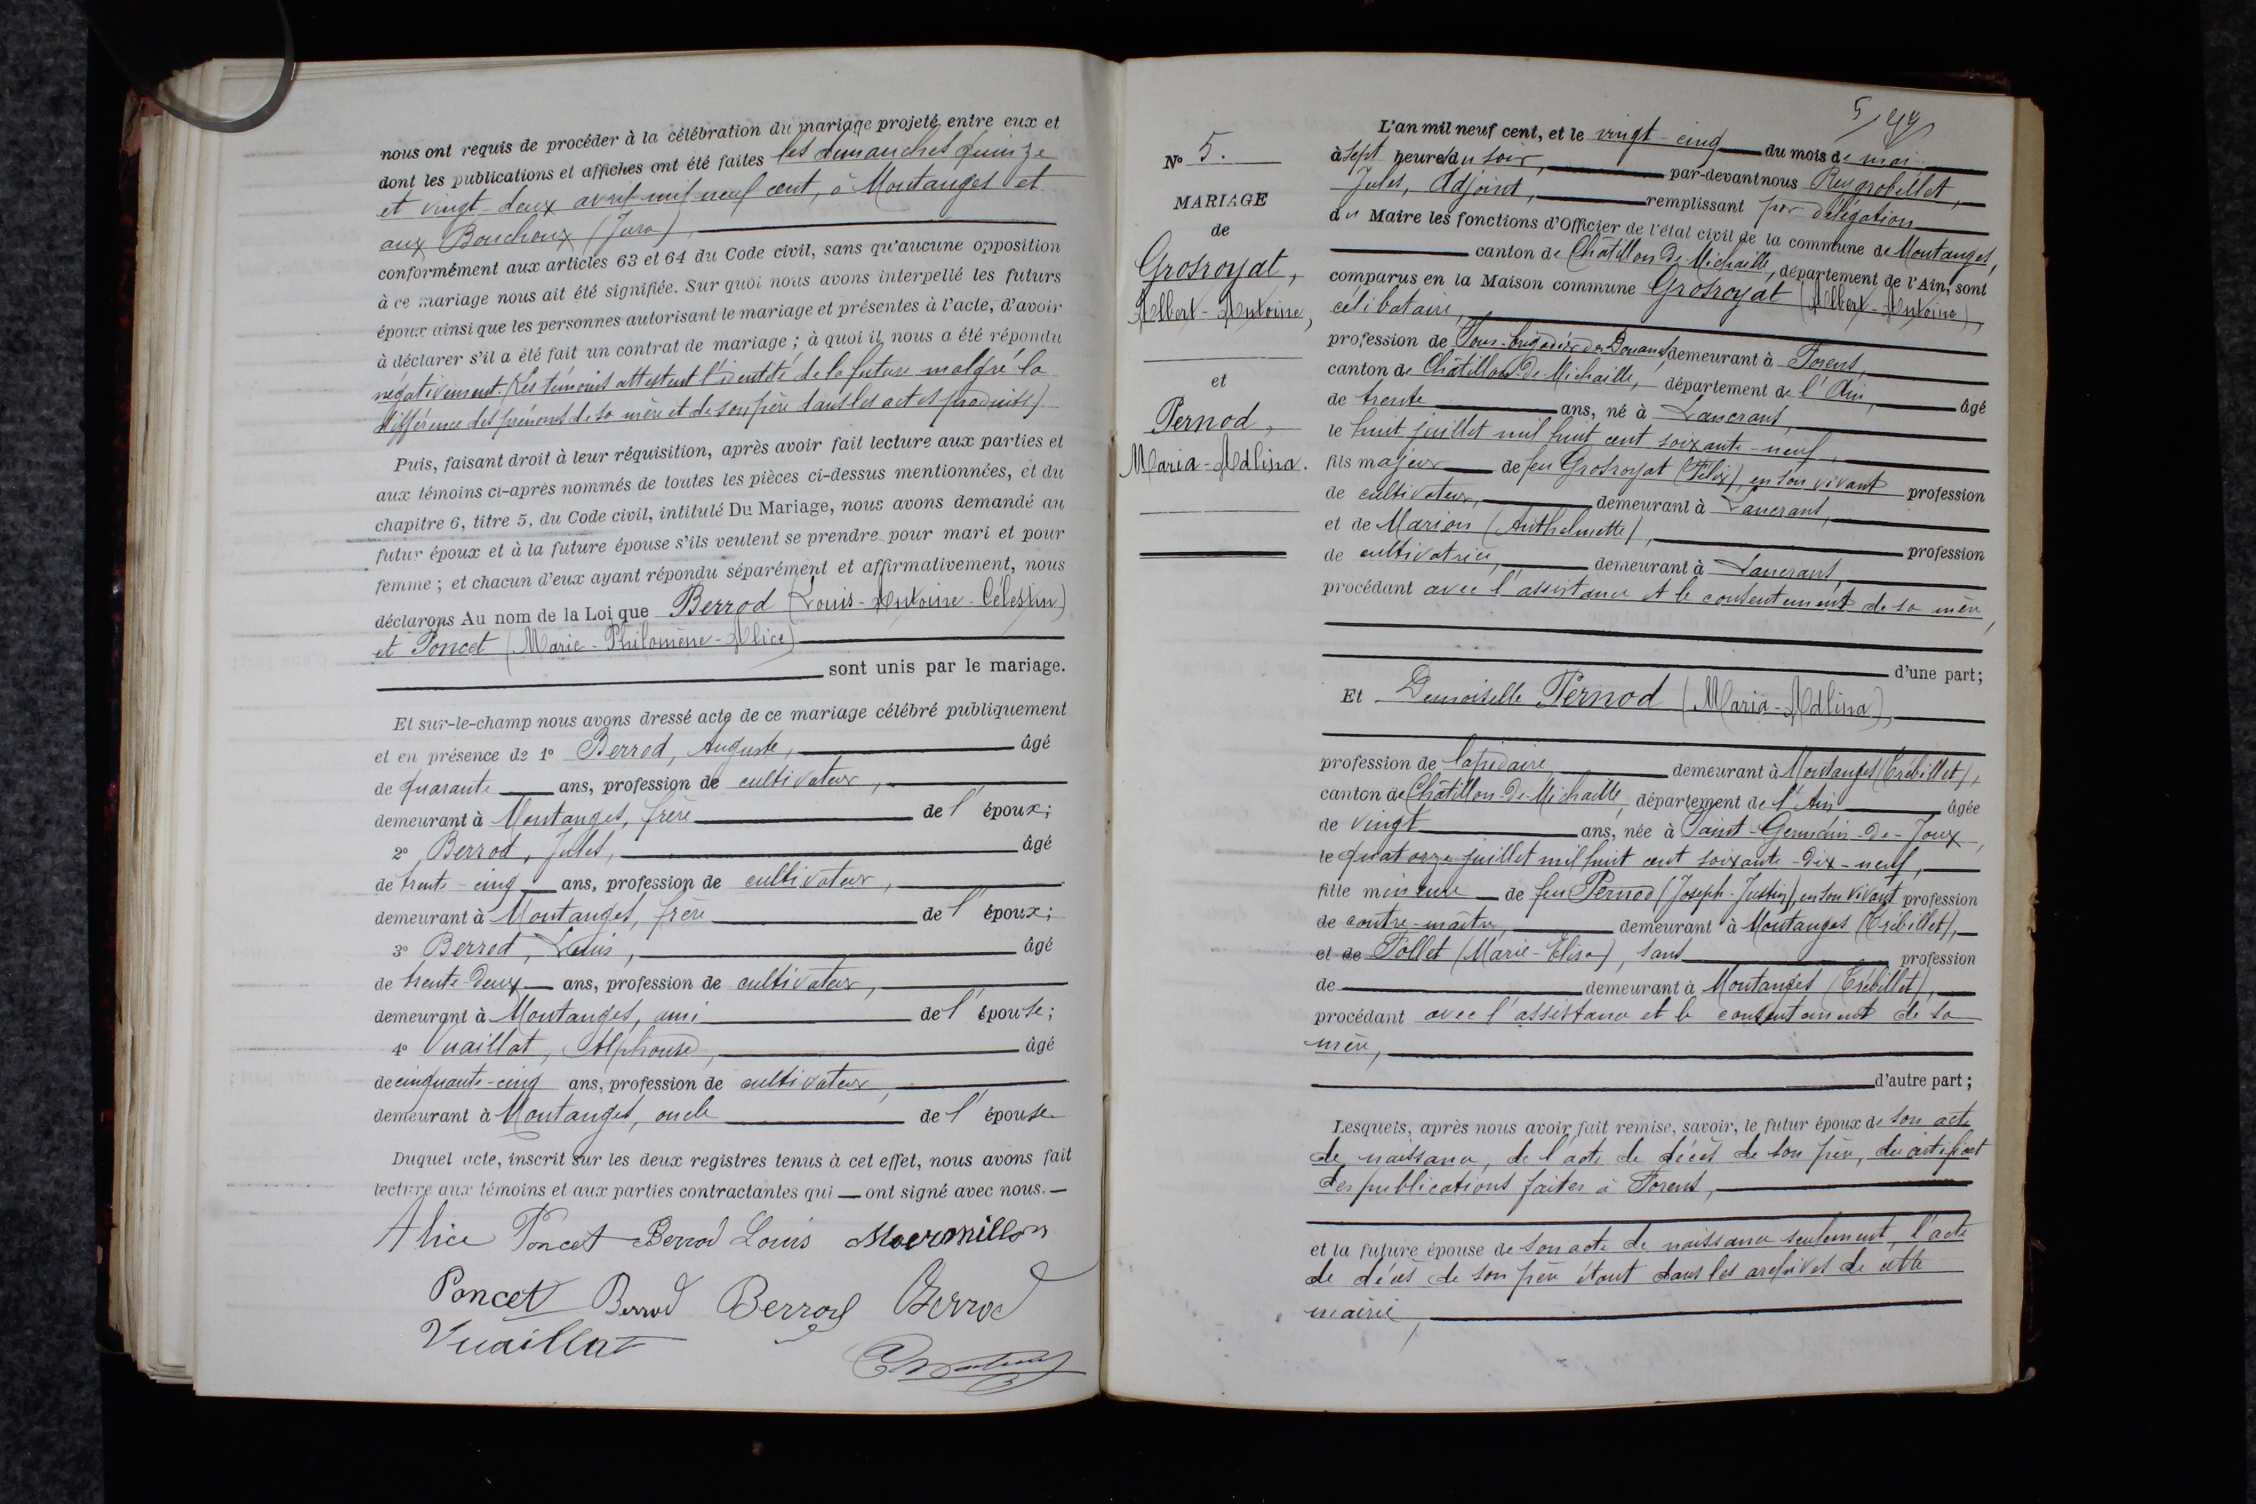 nous ont requis de procéder à la célébration du mariage projeté entre eux et
dont les publications et affiches ont été faites les dimanches quinze
et vingt-deux avril mil neuf cent, à Montanges et
aux Bouchoux (Jura),
conformément aux articles 63 et 64 du Code civil, sans qu'aucune opposition
à ce mariage nous ait été signifiée. Sur quoi nous avons interpellé les futurs
époux ainsi que les personnes autorisant le mariage et présentes à l'acte, d'avoir
à déclarer s'il a été fait un contrat de mariage ; à quoi il nous a été répondu
négativement. (Les témoins attestent l'identité de la future malgré la
différence des prénoms de sa mère et de son père dans les actes produits)
Puis, faisant droit à leur réquisition, après avoir fait lecture aux parties et
aux témoins ci-après nommés de toutes les pièces ci-dessus mentionnées, et du
chapitre 6, titre 5, du Code civil, intitulé Du Mariage, nous avons demandé au
futur époux et à la future épouse s'ils veulent se prendre pour mari et pour
femme ; et chacun d'eux ayant répondu séparément et affirmativement, nous
déclarons Au nom de la Loi que Berrod (Louis-Antoine-Célestin)
et Poncet (Marie-Philomène-Alice)
sont unis par le mariage.
Et sur-le-champ nous avons dressé acte de ce mariage célébré publiquement
et en présence de 1° Berrod, Auguste, âgé
de quarante ans, profession de cultivateur,
demeurant à Montanges, frère de l'époux ;
2° Berrod, Jules, âgé
de trente-cinq ans, profession de cultivateur,
demeurant à Montanges, frère de l'époux ;
3° Berrod, Louis, âgé
de trente-deux ans, profession de cultivateur,
demeurant à Montanges, ami de l'épouse ;
4° Vuaillat, Alphonse, âgé
de cinquante-cinq ans, profession de cultivateur,
demeurant à Montanges, oncle de l'épouse
Duquel acte, inscrit sur les deux registres tenus à cet effet, nous avons fait
lecture aux témoins et aux parties contractantes qui ont signé avec nous.
Alice Poncet Berrod Louis Mermillon
Poncet Berrod Berrod Berrod
Vuaillat
5
N° 5.
MARIAGE
de
Grosroyat,
Albert-Antoine,
et
Pernod,
Maria-Adlina.
L'an mil neuf cent, et le vingt-cinq du mois de mai
à sept heures du soir, par-devant nous Reygrobellet,
Jules, Adjoint, remplissant par délégation
du Maire les fonctions d'Officier de l'état civil de la commune de Montanges,
canton de Châtillon-de-Michaille, département de l'Ain, sont
comparus en la Maison commune Grosroyat (Albert-Antoine),
célibataire,
profession de Sous-brigadier des Douanes, demeurant à Forens,
canton de Châtillon-de-Michaille, département de l'Ain, âgé
de trente ans, né à Lancrans,
le huit juillet mil huit cent soixante-neuf,
fils majeur de feu Grosroyat (Félix), en son vivant profession
de cultivateur, demeurant à Lancrans,
et de Marion (Anthelmette), profession
de cultivatrice, demeurant à Lancrans,
procédant avec l'assistance et le consentement de sa mère,
d'une part ;
Et Demoiselle Pernod (Maria-Adlina),
profession de lapidaire demeurant à Montanges (Trébillet),
canton de Châtillon-de-Michaille, département de l'Ain âgée
de vingt ans, née à Saint-Germain-de-Joux,
le quatorze juillet mil huit cent soixante-dix-neuf,
fille mineure de feu Pernod (Joseph-Justin), en son vivant profession
de contre-maître, demeurant à Montanges (Trébillet),
et de Follet (Marie-Elisa), sans profession
de demeurant à Montanges (Trébillet),
procédant avec l'assistance et le consentement de sa
mère,
d'autre part ;
Lesquels, après nous avoir fait remise, savoir, le futur époux de son acte
de naissance, de l'acte de décès de son père, du certificat
des publications faites à Forens,
et la future épouse de son acte de naissance seulement, l'acte
de décès de son père étant dans les archives de cette
mairie,